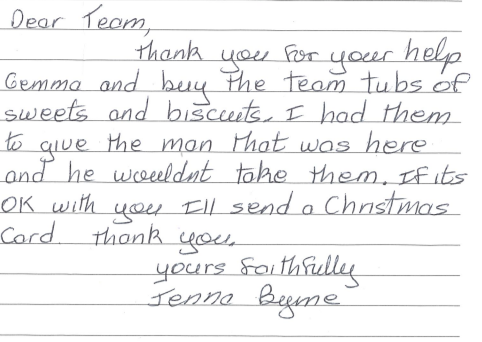 Dear Team,
thank you for your help
Gemma and buy the team tubs of
sweets and biscuts. I had them
to give the man that was here
and he wouldnt take them. If its
OK with you I'll send a Christmas
Card. thank you.
yours faithfully
Jenna Byrne